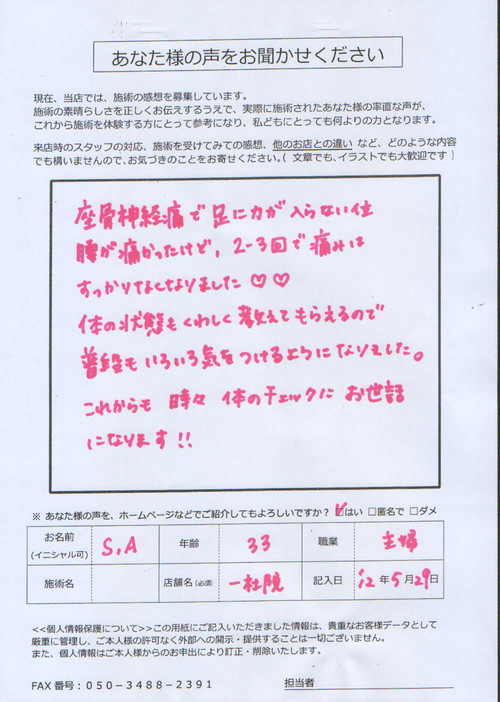 あなた様の声をお聞かせください
現在、当店では、施術の感想を募集しています。
施術の素晴らしさを正しくお伝えするうえで、実際に施術されたあなた様の率直な声が、
これから施術を体験する方にとって参考になり、私どもにとっても何よりの力となります。
来店時のスタッフの対応、施術を受けてみての感想、他のお店との違い など、どのような内容
でも構いませんので、お気づきのことをお寄せください。( 文章でも、イラストでも大歓迎です )
座骨神経痛で足に力が入らない位
腰が痛かったけど、2-3回で痛みは
すっかりなくなりました♡♡
体の状態もくわしく教えてもらえるので
普段もいろいろ気をつけるようになりました。
これからも 時々 体のチェックに お世話
になります!!
※ あなた様の声を、ホームページなどでご紹介してもよろしいですか？ ☑はい □匿名で □ダメ
お名前 (イニシャル可) S.A 年齢 33 職業 主婦
施術名 店舗名 (必須) 一社院 記入日 '12 年 5 月 29 日
<<個人情報保護について>>この用紙にご記入いただきました情報は、貴重なお客様データとして
厳重に管理し、ご本人様の許可なく外部への開示・提供することは一切ございません。
また、個人情報はご本人様からのお申出により訂正・削除いたします。
FAX 番号：050－3488－2391 担当者